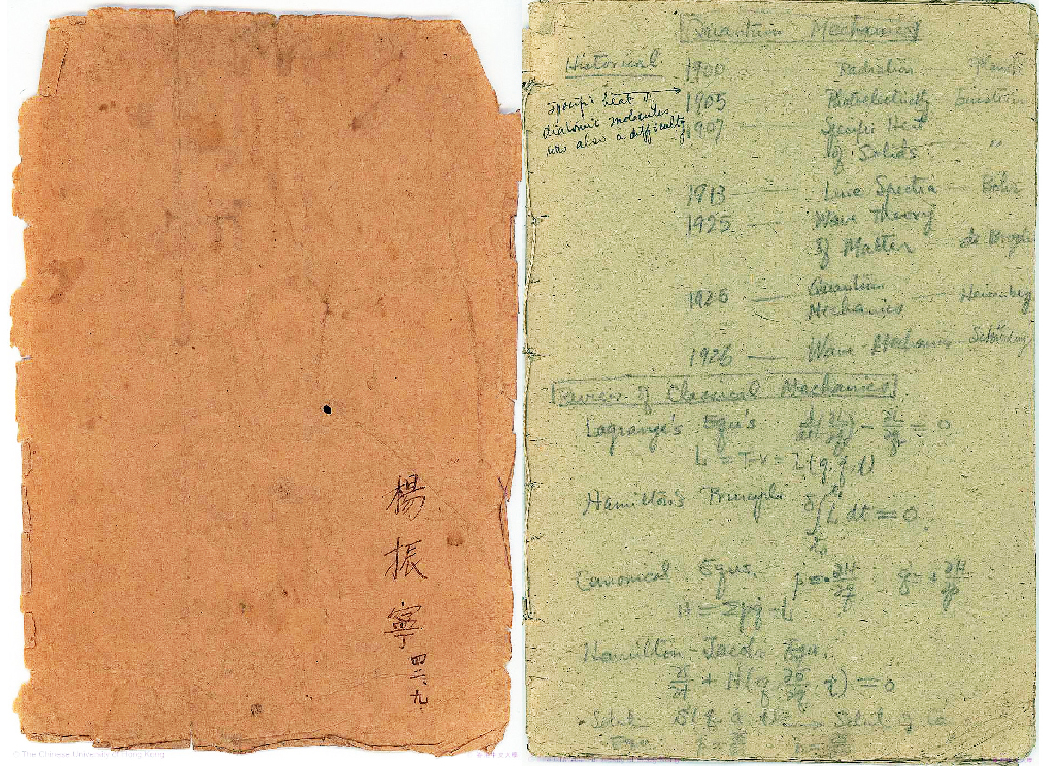 楊振寧
四二、九
© The Chinese University of Hong Kong
Quantum Mechanics
Historical
1900 Radiation Planck
specific heat of
diatomic molecules
was also a difficulty
1905 Photoelectricity Einstein
1907 Specific Heat
of Solids "
1913 Line Spectra Bohr
1925 Wave Theory
of Matter de Broglie
1925 Quantum
Mechanics Heisenberg
1926 Wave Mechanics Schröding
Review of Classical Mechanics
Lagrange's Equ's d/dt(∂L/∂q̇) - ∂L/∂q = 0
L = T-V = L(q, q̇, t)
Hamilton's Principle δ∫L dt = 0
Canonical Equs. ṗ = -∂H/∂q q̇ = +∂H/∂p
H = Σpq̇ - L
Hamilton-Jacobi Equ.
+ H(q, ∂S/∂q, t) = 0